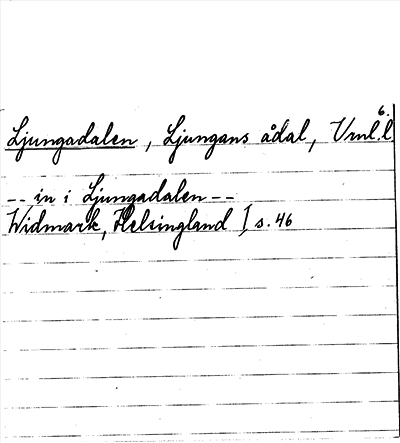 6.
Ljungadalen, Ljungans ådal, Vrnl. l.
-- in i Ljungadalen --
Widmark, Helsingland I s. 46